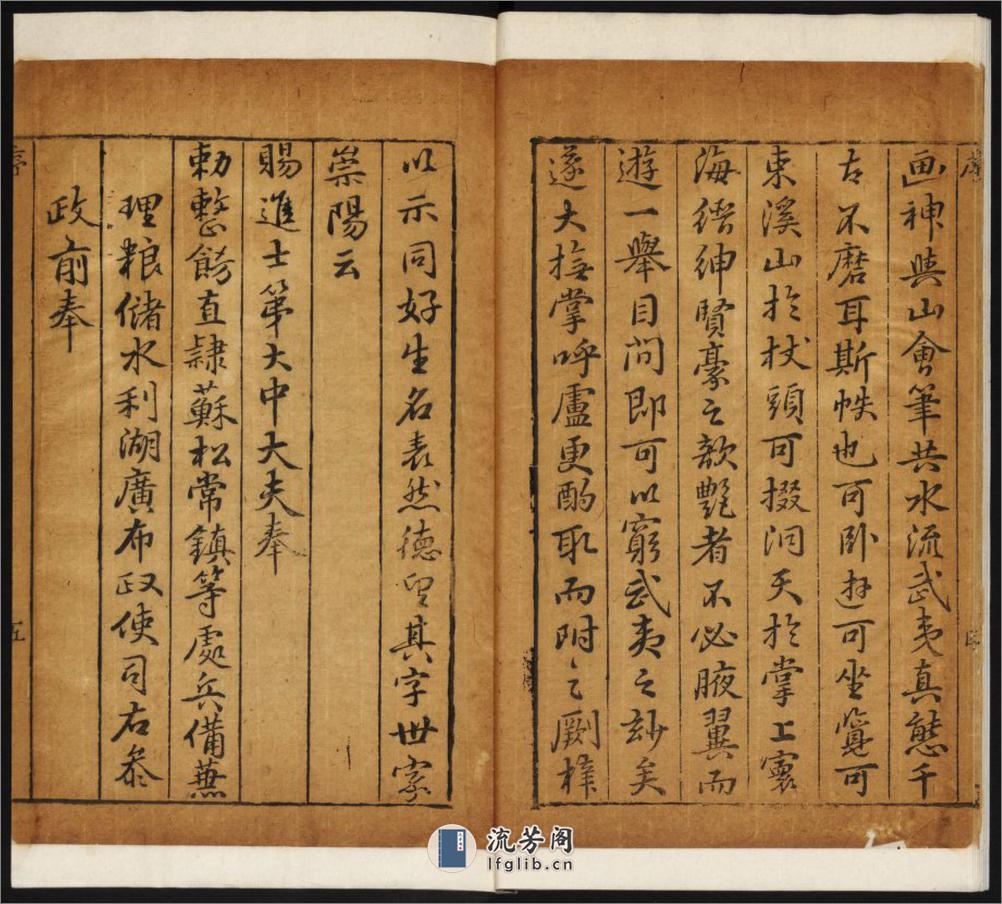 画神與山會筆共水流武夷真態千
古不磨耳斯帙也可卧遊可坐覽可
束溪山於杖頭可掇洞天於掌上寰
海縉紳賢豪之歆艷者不必腋翼而
遊一舉目間即可以窮武夷之玅矣
遂大撫掌呼盧更酌取而附之劂梓
以示同好生名表然德望其字世家
崇陽云
賜進士第大中大夫奉
勑整飭直隷蘇松常鎮等處兵備蕪
理粮儲水利湖廣布政使司右叅
政前奉
序
五
流芳阁
lfglib.cn